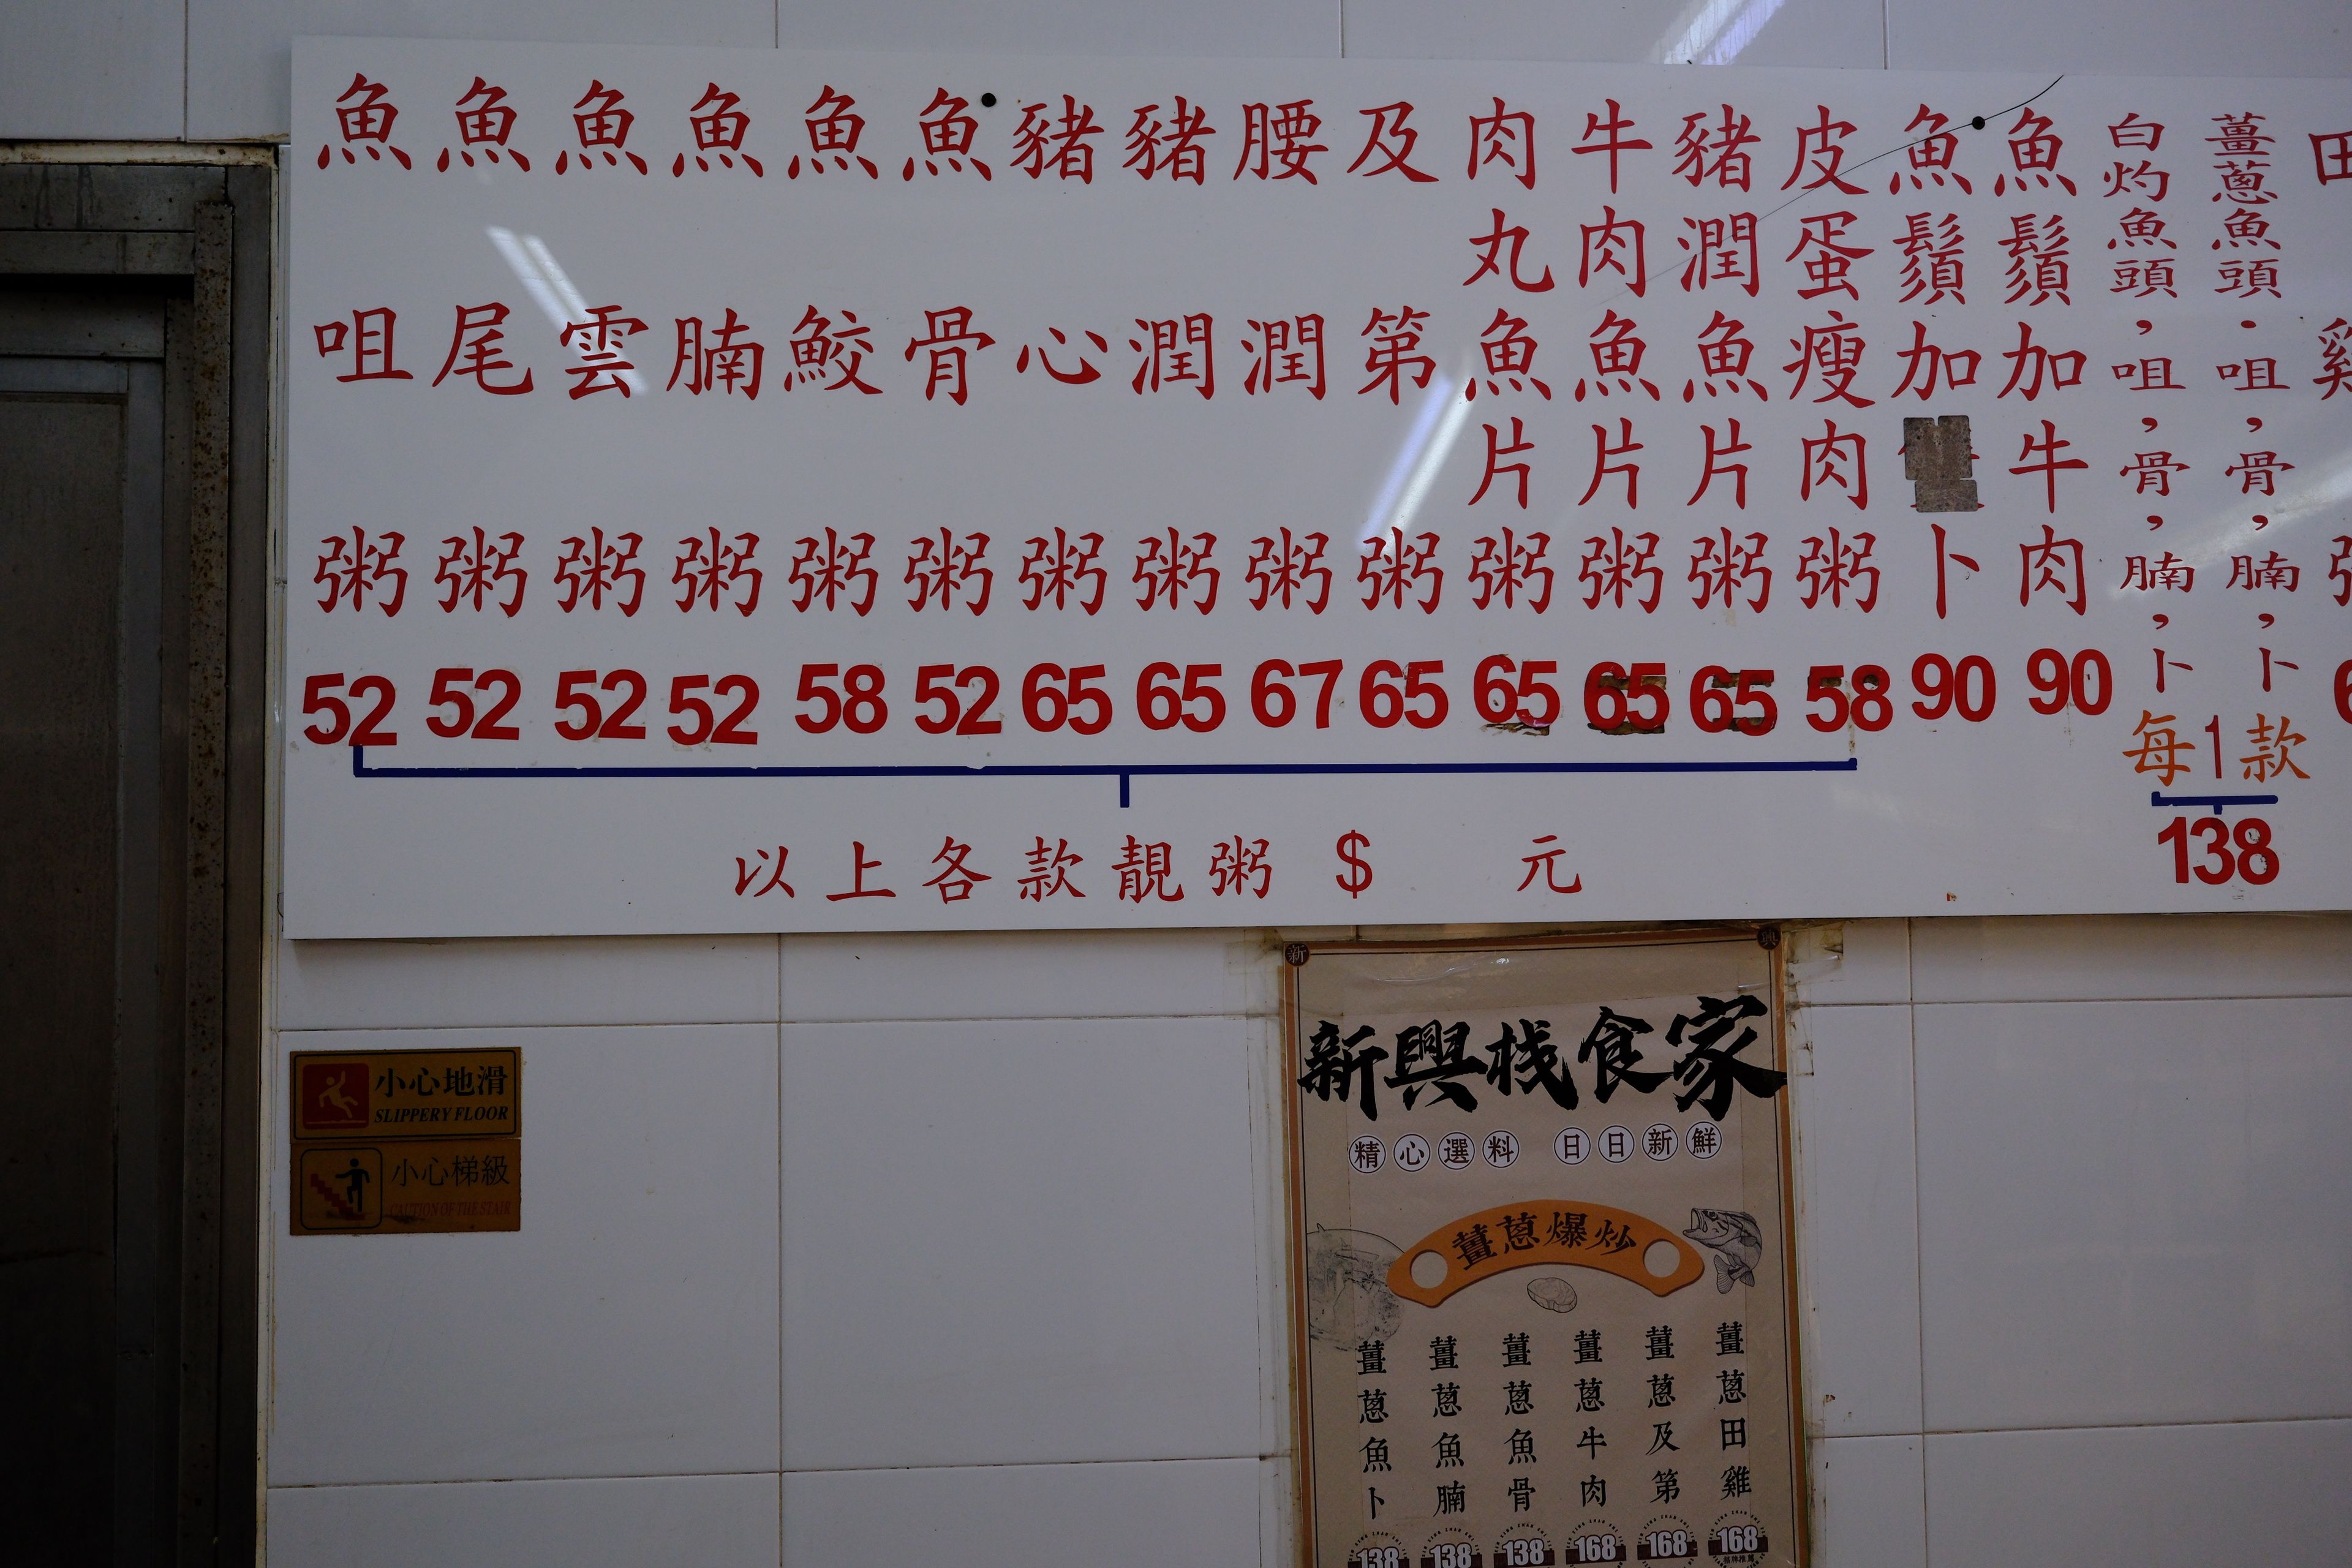 魚咀粥 52
魚尾粥 52
魚雲粥 52
魚腩粥 52
魚鮫粥 58
魚骨粥 52
豬心粥 65
豬潤粥 65
腰潤粥 67
及第粥 65
肉丸魚片粥 65
牛肉魚片粥 65
豬潤魚片粥 65
皮蛋瘦肉粥 58
魚鬚加卜 90
魚鬚加牛肉 90
白灼魚頭,咀,骨,腩,卜
薑蔥魚頭·咀,骨,腩,卜
每1款
138
田雞
以上各款靚粥 $ 元
新 興
新興棧食家
精心選料 日日新鮮
薑蔥爆炒
薑蔥魚卜 138
薑蔥魚腩 138
薑蔥魚骨 138
薑蔥牛肉 168
薑蔥及第 168
薑蔥田雞 168
小心地滑
SLIPPERY FLOOR
小心梯級
CAUTION OF THE STAIR